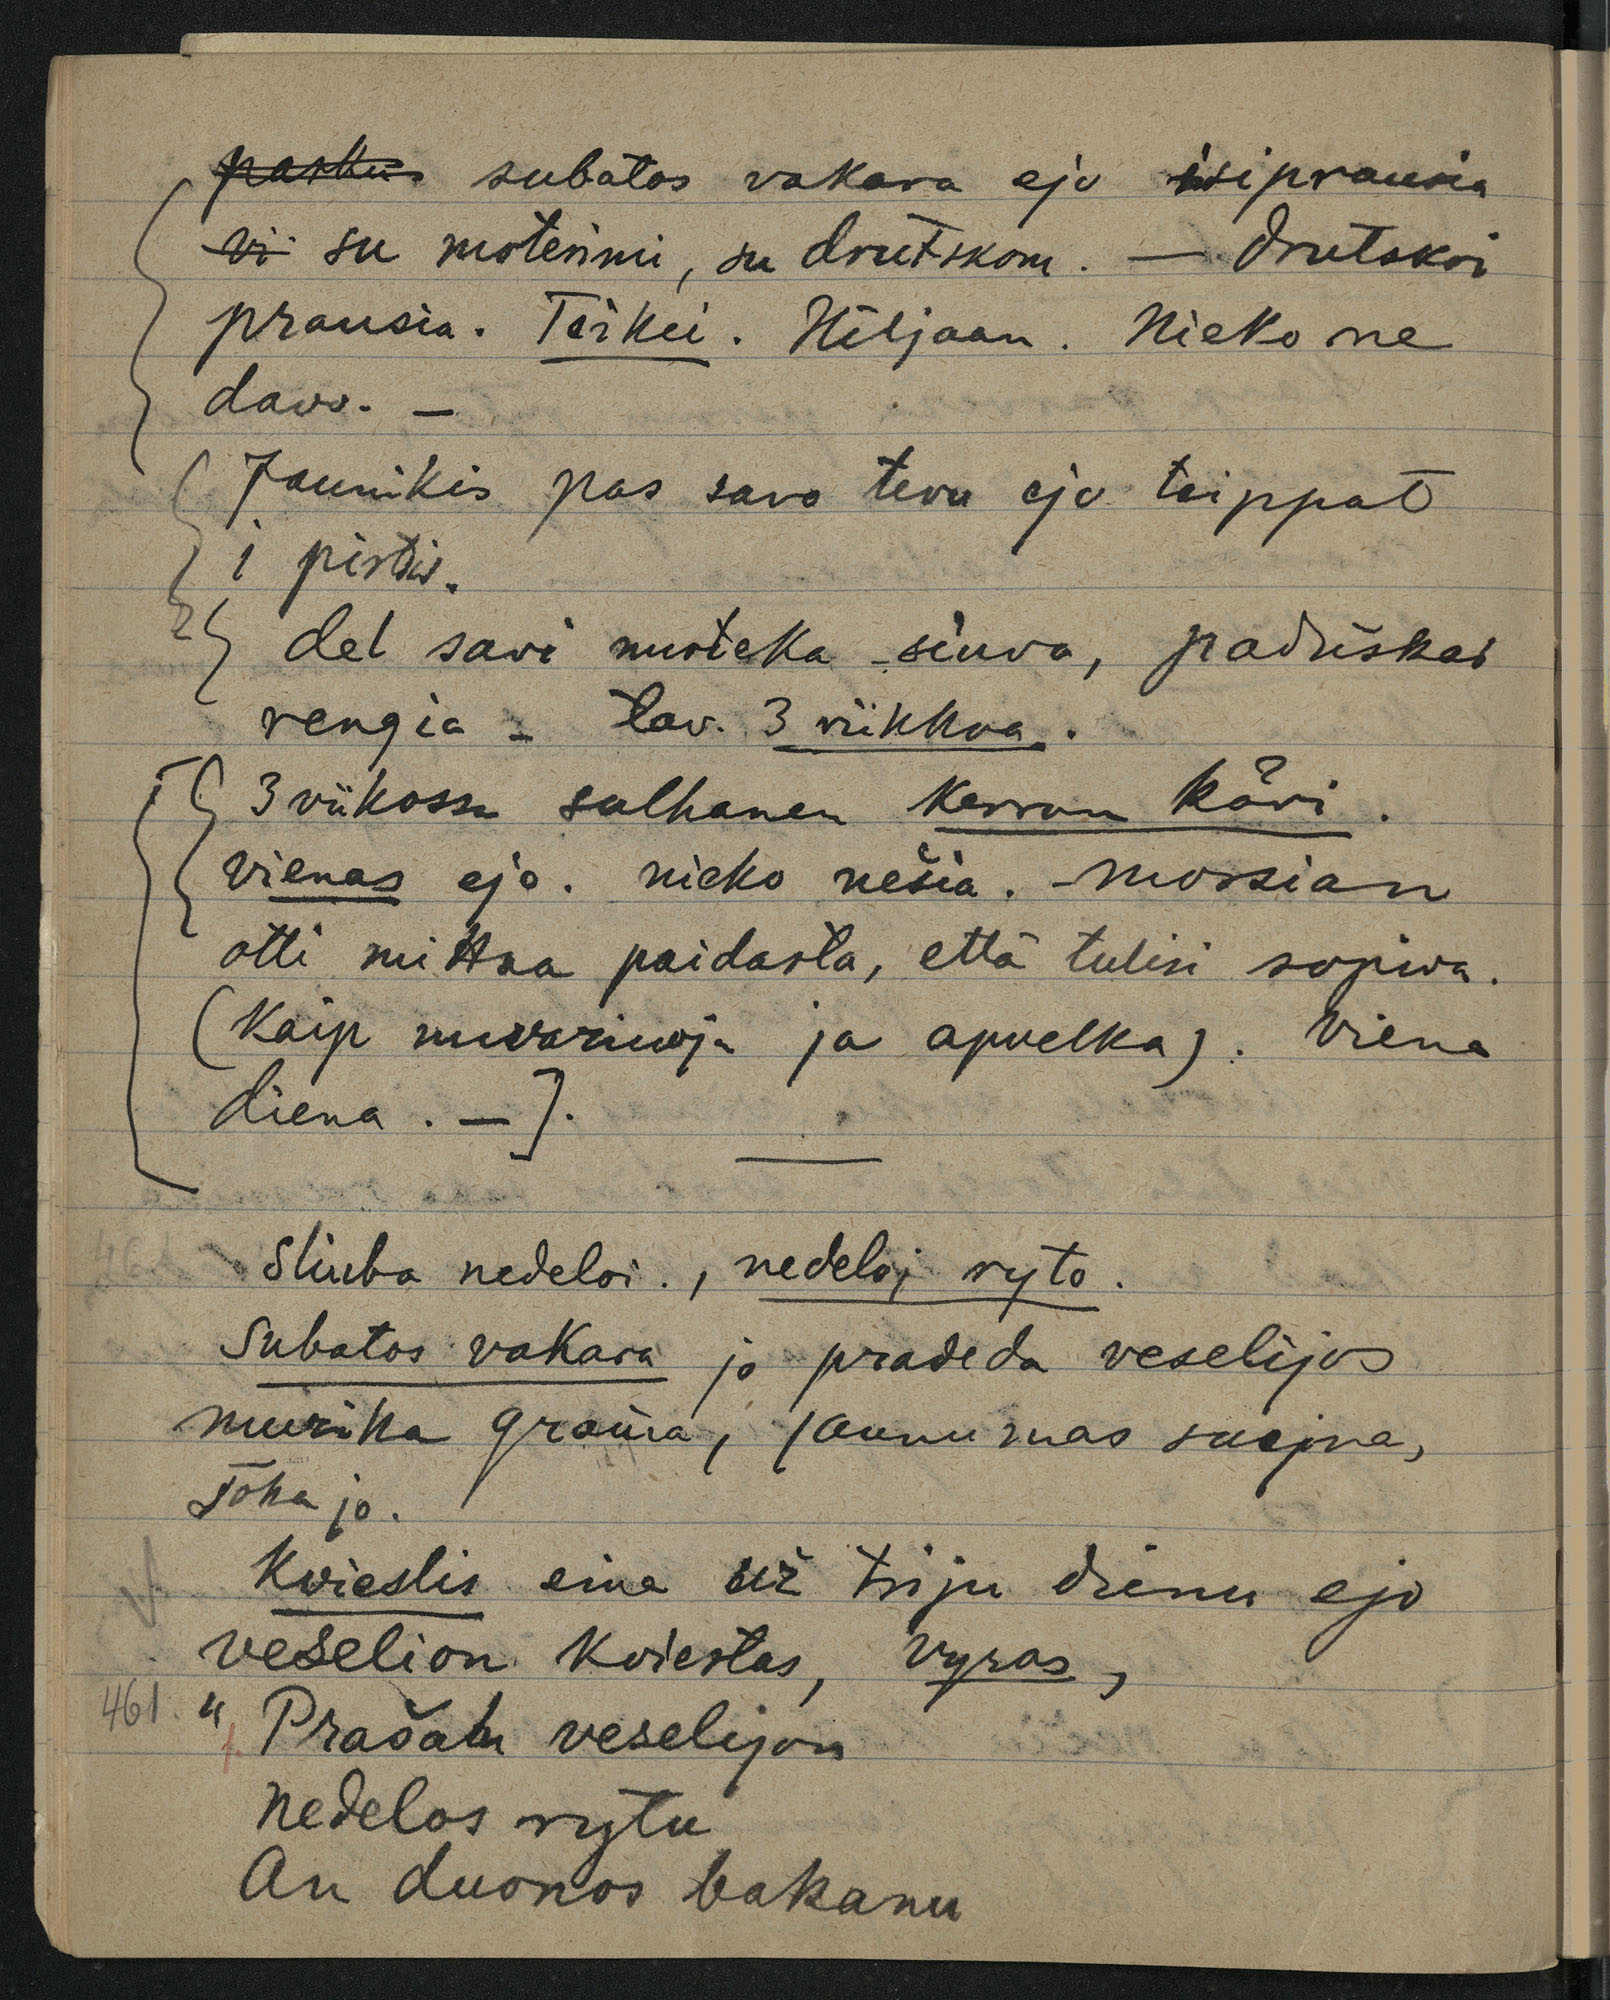 paskui subatos vakara ejo isiprausia
vi su moterimi, su drutskom. — drutskoi
prausia. Teikei. Hiljaan. Nieko ne
davo. —
Jaunikis pas savo teva ejo teippat
i pirtis.
2 del savi moteka siuva, paduškas
rengia – tav. 3 viikkoa.
3 viikossa sulhanen kerran kävi.
vienas ejo. nieko nešia. – morsian
otti mittaa paidasta, että tulisi sopiva.
(Kaip nuvariuoja ja apvelka). Viena
diena. —].
Sliuba nedeloi., nedeloj ryto.
Subatos vakara jo pradeda veselijos
muzika graina, jaunumas sueina,
šoka jo.
Kvieslis eina už triju dienu ejo
veselion kviestas, vyras,
461. " Prašau veselijon
nedelos rytu
An duonos bakanu